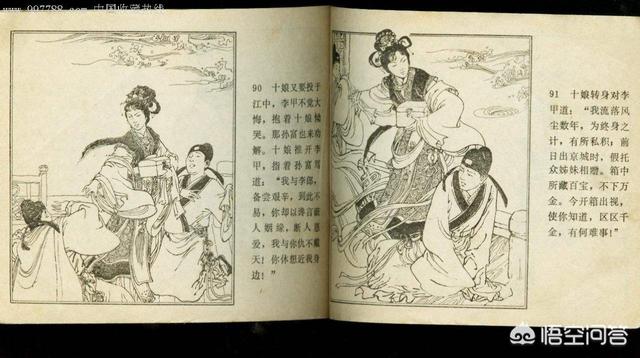 www.997788.com 中国收藏热线
90 十娘又要投于
江中，李甲不觉大
悔，抱着十娘恸
哭。那孙富也来劝
解。十娘推开李
甲，指着孙富骂
道：“我与李郎，
备尝艰辛，到此不
易，你却以谗言破
人姻缘，断人恩
爱，我与你仇不戴
天！你休想近我身
边！”
91 十娘转身对李
甲道：“我流落风
尘数年，为终身之
计，有所私积；前
日出京城时，假托
众姊妹相赠。箱中
所藏百宝，不下万
金。今开箱出视，
使你知道，区区千
金，有何难事！”
悟空问答